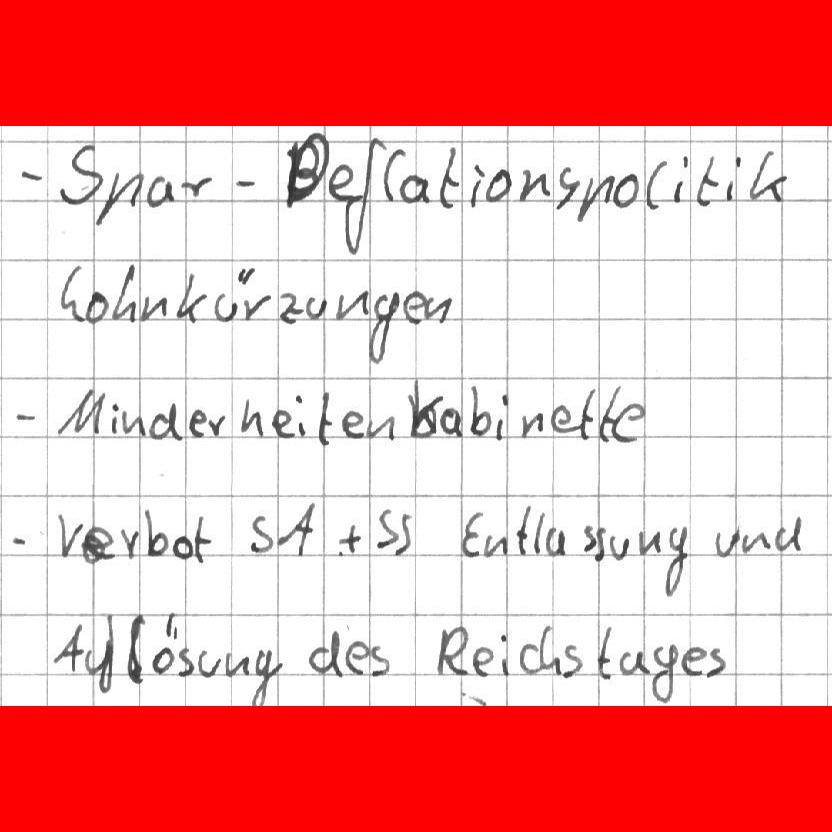 - Spar - Deflationspolitik
Lohnkürzungen
- Minderheitenkabinette
- Verbot SA + SS Entlassung und
Auflösung des Reichstages